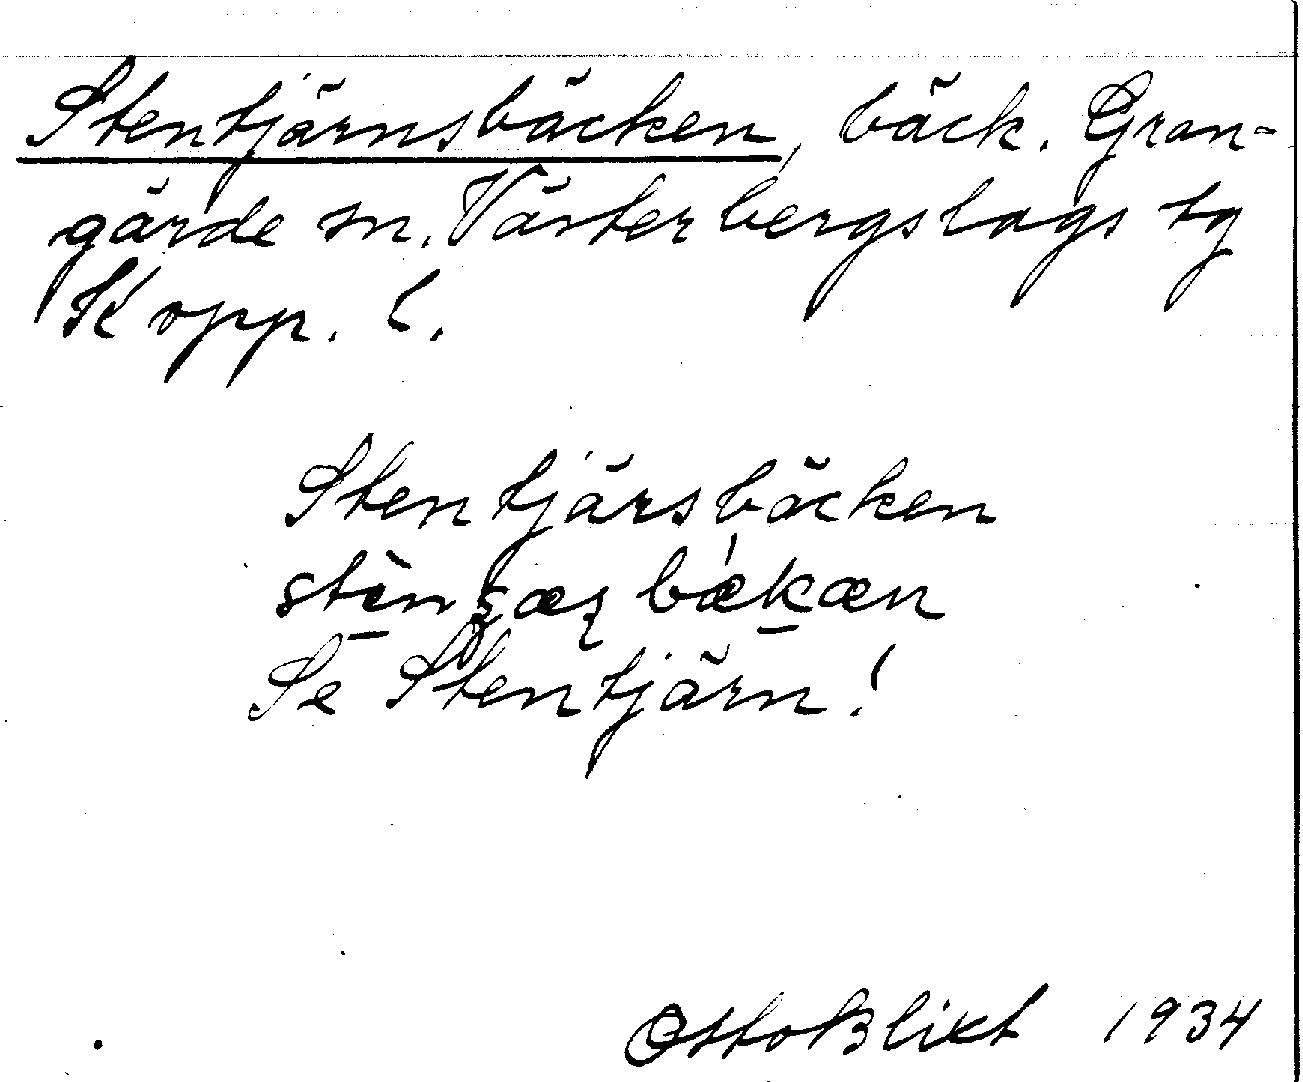 Stentjärnsbäcken, bäck. Gran-
gärde sn. Västerbergslags tg
Kopp. l.
Stentjärsbäcken
Se Stentjärn!
Otto Blixt 1934